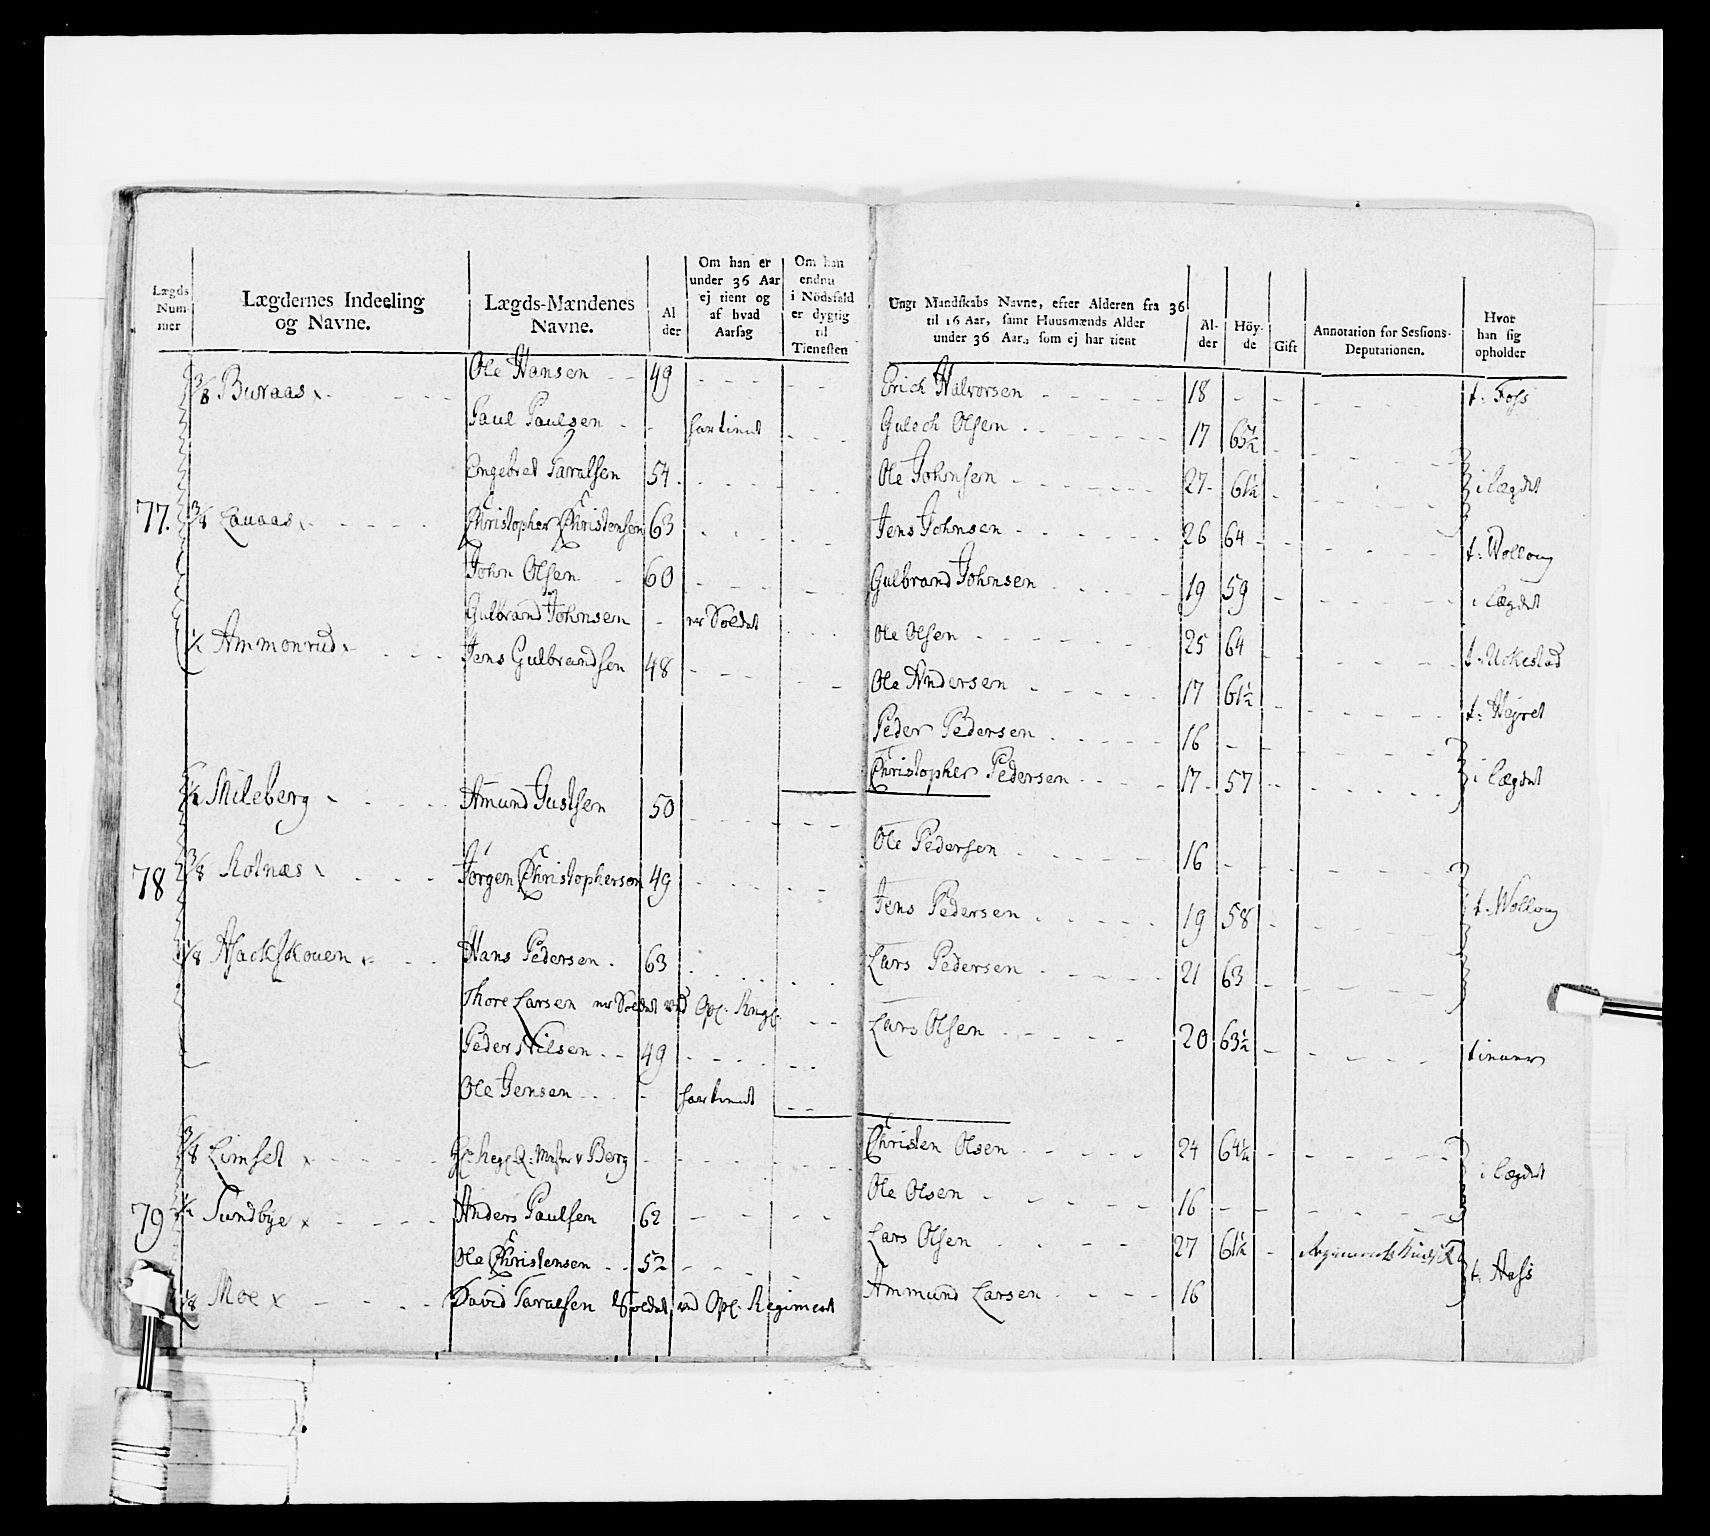 Lægds Nummer
Lægdernes Indeeling og Navne.
Lægds-Mændenes Navne.
Alder
Om han er under 36 Aar ej tient og af hvad Aarsag
Om han endnu i Nödsfald er dygtig til Tienesten
Ungt Mandskabs Navne, efter Alderen fra 36 til 16 Aar, samt Huusmænds Alder under 36 Aar, som ej har tient
Alder
Höyde
Gift
Annotation for Sessions-Deputationen.
Hvor han sig opholder
3/8 Buraas Ole Hansen 49
Paul Paulsen har tient
Engebret Taralsen 54
77. 3/8 Lauaas Christopher Christensen 63
John Olsen 60
Gulbrand Johnsen nr Soldat
1/2 Ammonrud Jens Gulbrandsen 48
1/2 Mileberg Amund Gustsen 50
78 3/8 Rotnæs Jörgen Christophersen 49
1/8 Hackskouen Hans Pedersen 63
Thore Larsen nr Soldat ved Opl:
Peder Nilsen 49
Ole Jensen har tient
3/8 Limset Berg
79 1/2 Sundbye Anders Paulsen 62
Ole Christensen 52
1/8 Moe David Taralsen Soldat ved Opl: Regiment
Erich Halvorsen 18 t: Foss
Gulech Olsen 17 65 1/2
Ole Johnsen 27 61 1/2 i Lægdet
Jens Johnsen 26 64 t: Wolloug
Gulbrand Johnsen 19 59 i Lægdet
Ole Olsen 25 64 t:
Ole Andersen 17 61 1/2 t:
Peder Pedersen 16
Christopher Pedersen 17 57 i Lægdet
Ole Pedersen 16
Jens Pedersen 19 58 t: Wolloug
Lars Pedersen 21 63
Lars Olsen 20 63 1/2 tienner
Christen Olsen 24 64 1/2 i Lægdet
Ole Olsen 16
Lars Olsen 27 61 1/2 t: Aass
Ammund Larsen 16